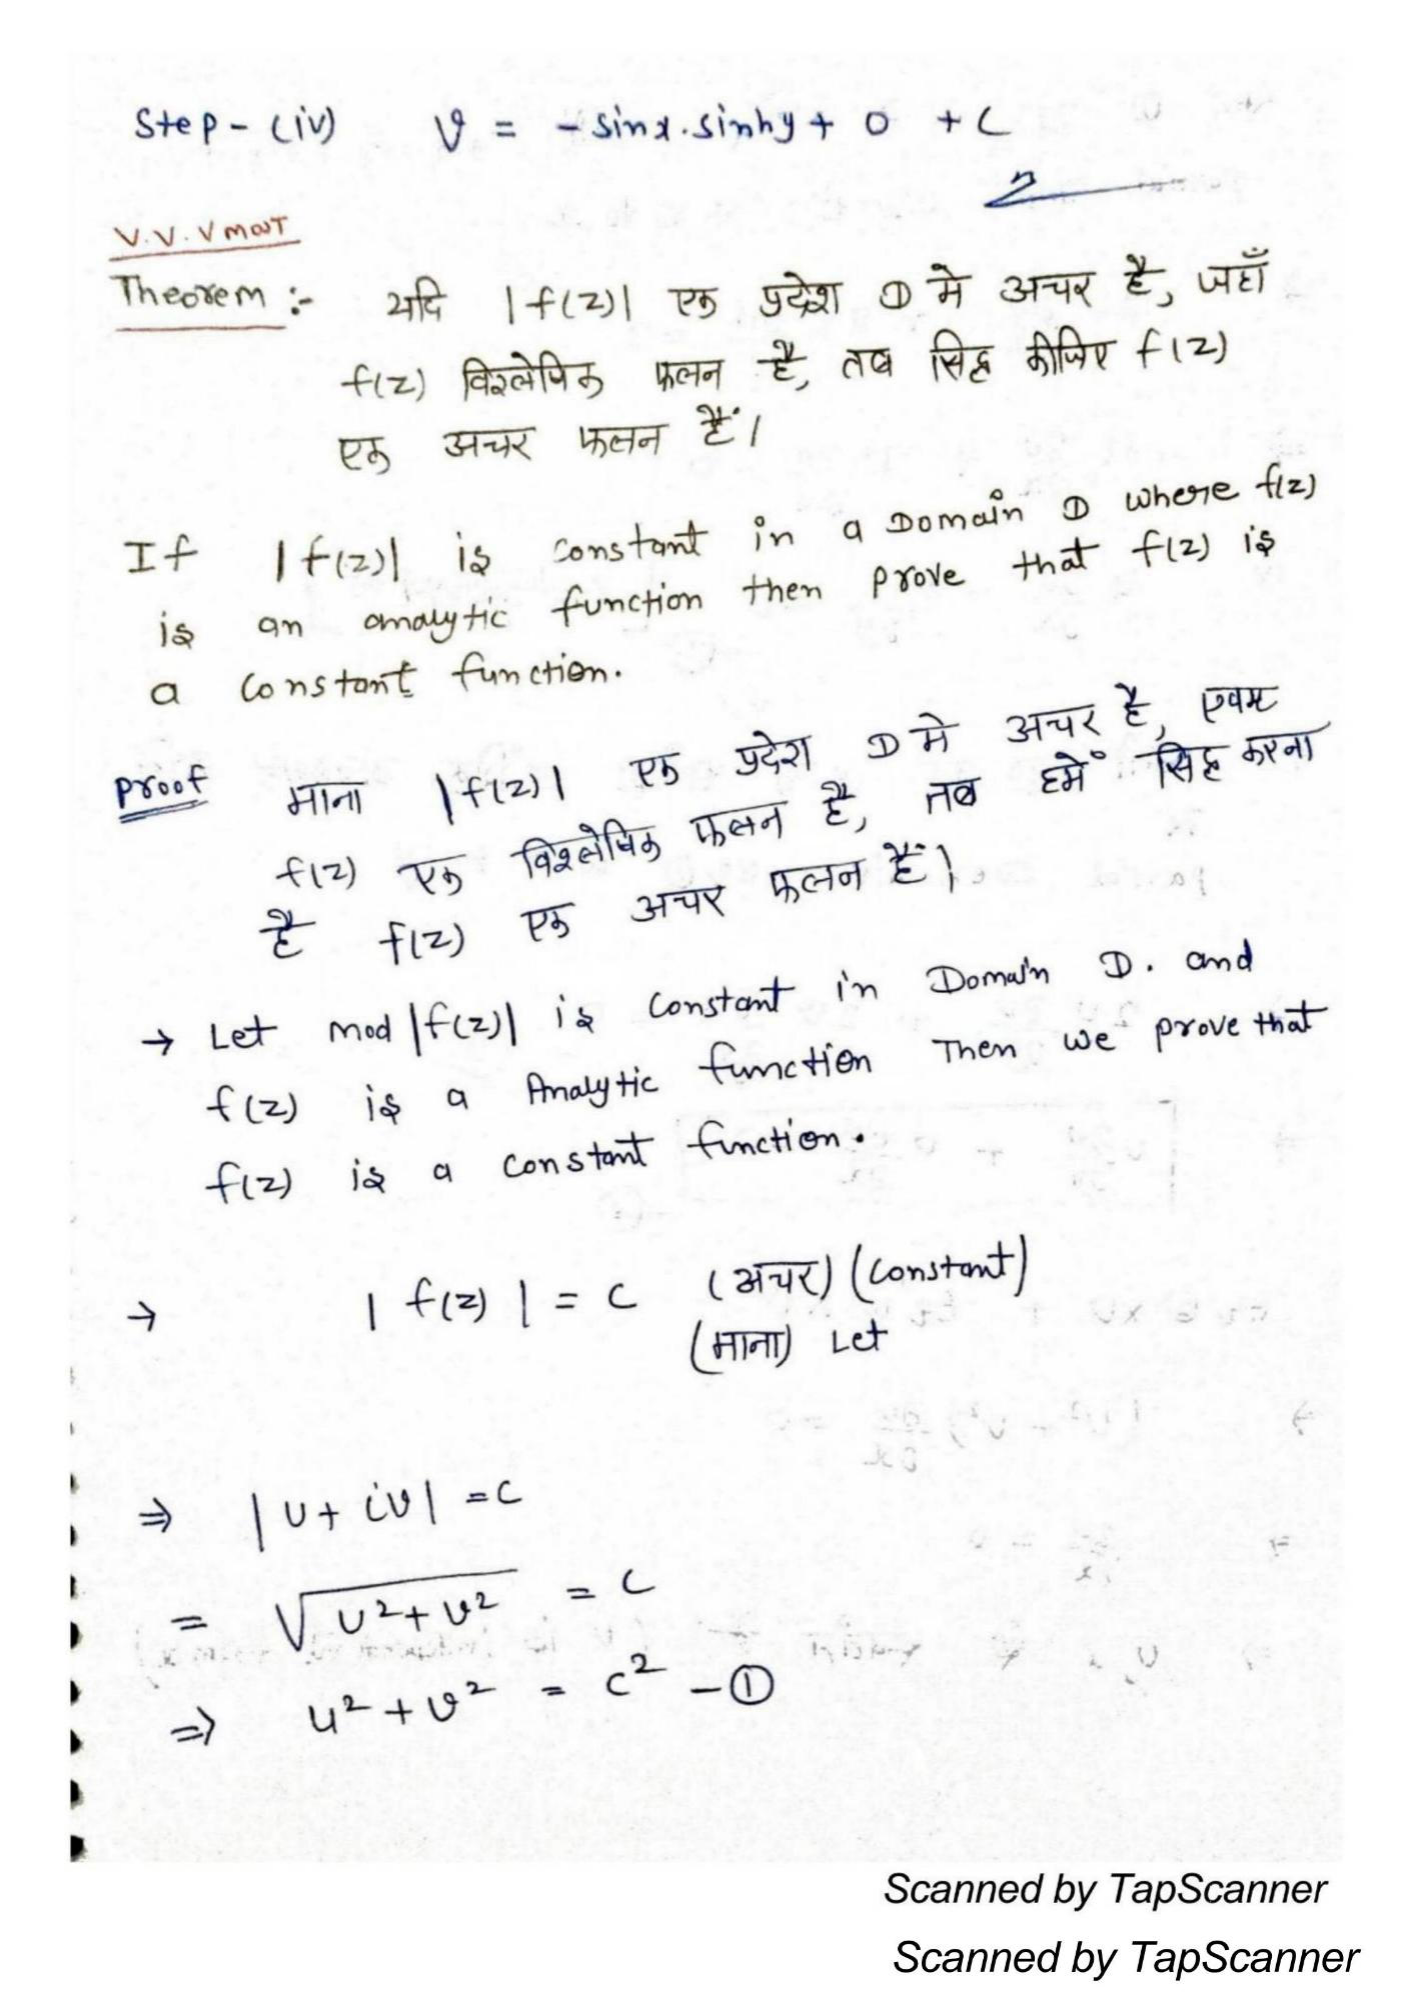 Step-(iv) v = -sinx.sinhy + 0 + c
V.V.V most
Theorem :- यदि |f(z)| एक प्रदेश D मे अचर है, जहाँ
f(z) विश्लेषिक फलन है, तब सिद्ध कीजिए f(z)
एक अचर फलन हैं।
If |f(z)| is constant in a Domain D where f(z)
is an analytic function then prove that f(z) is
a constant function.
Proof माना |f(z)| एक प्रदेश D मे अचर है, एवम
f(z) एक विश्लेषिक फलन है, तब हमें सिद्ध करना
है f(z) एक अचर फलन हैं।
→ Let mod |f(z)| is constant in Domain D. and
f(z) is a Analytic function Then we prove that
f(z) is a constant function.
→ |f(z)| = c (अचर) (constant)
(माना) Let
⇒ |u + iv| = c
= √u² + v² = c
⇒ u² + v² = c² - ①
Scanned by TapScanner
Scanned by TapScanner